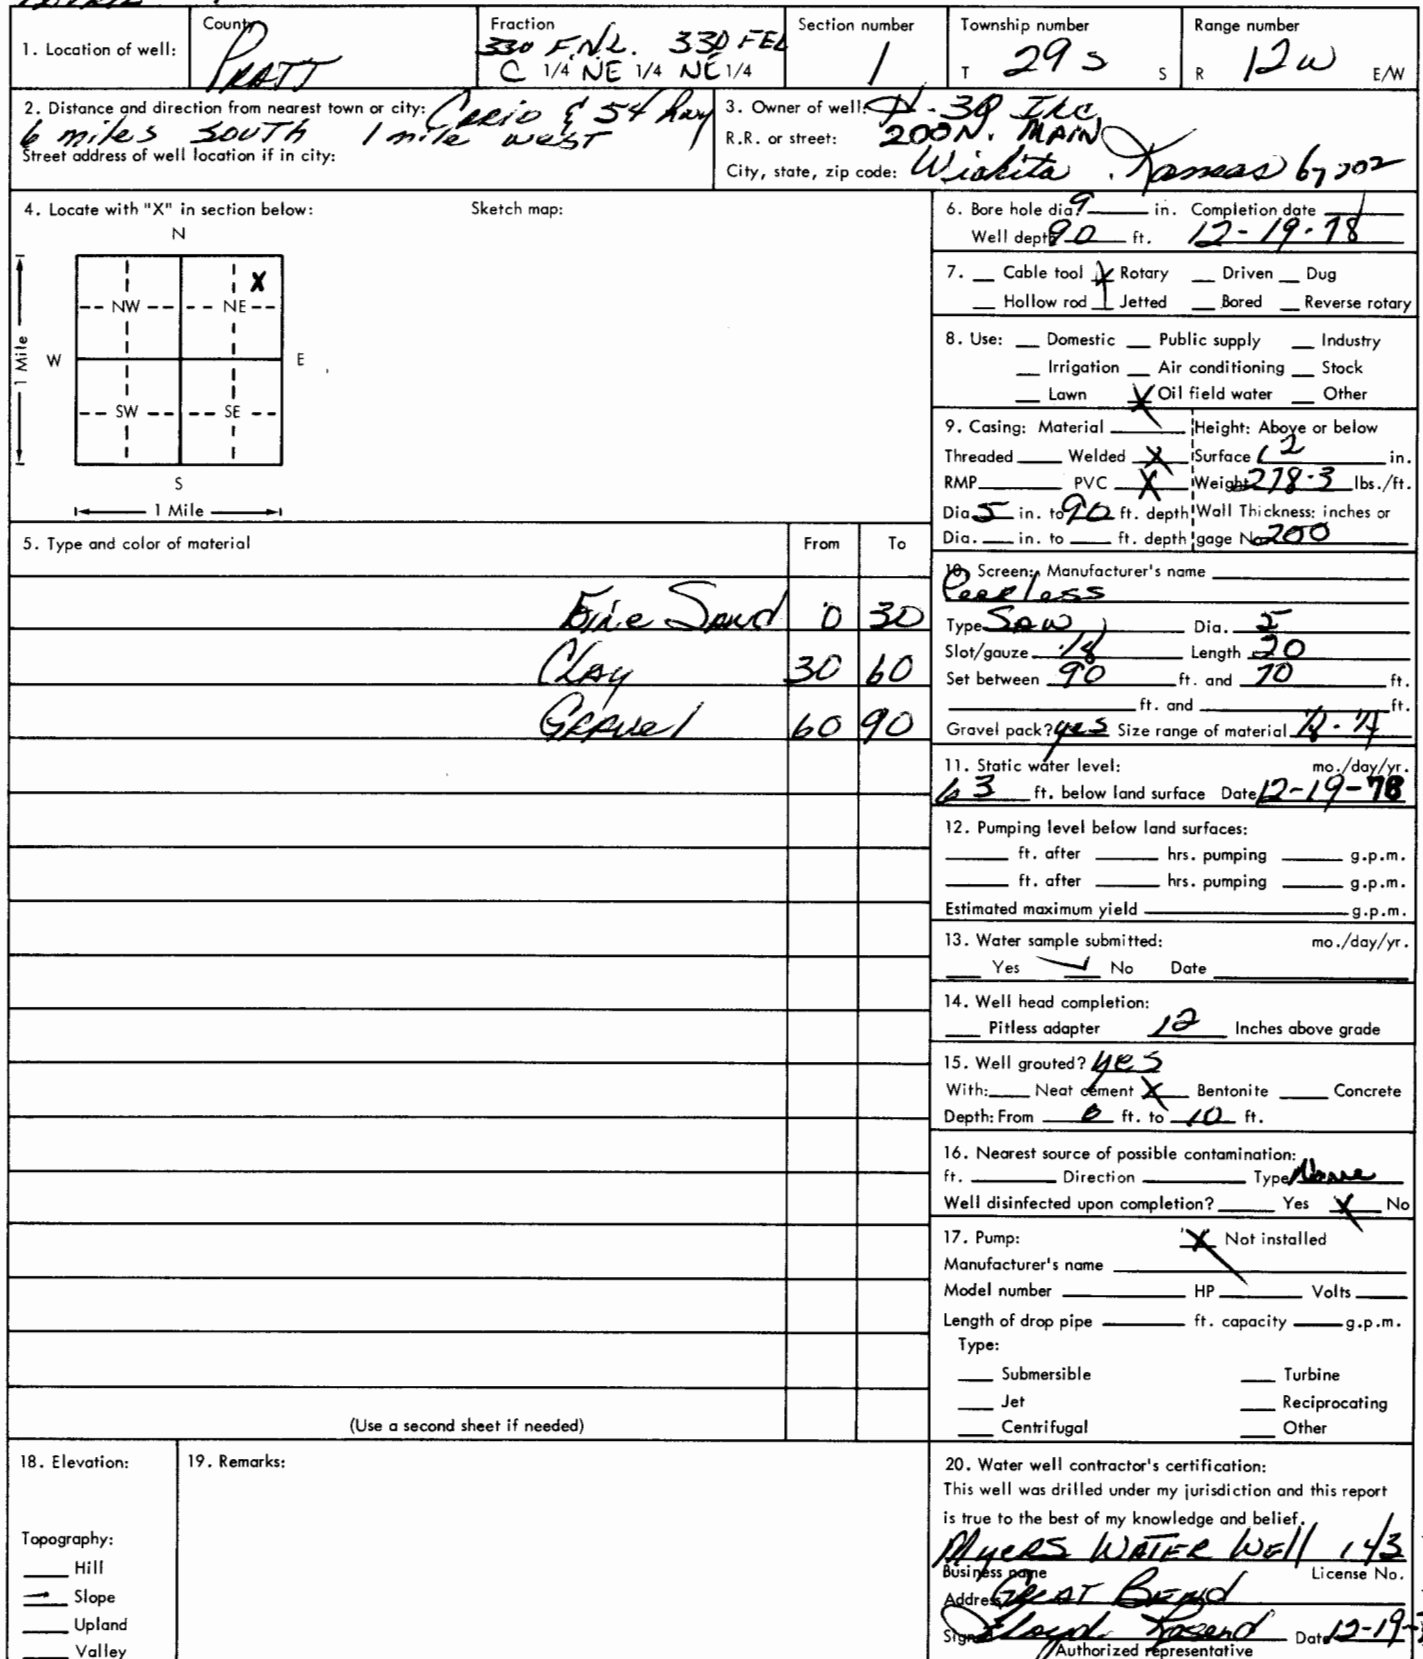 1. Location of well:
County
PRATT
Fraction
330 F.N.L. 330 FEL
C 1/4 NE 1/4 NE 1/4
Section number
1
Township number
T 29 S S
Range number
R 12W E/W
2. Distance and direction from nearest town or city: & 54 hwy
6 miles SOUTH 1 mile west
Street address of well location if in city:
3. Owner of well: H-30 Inc
R.R. or street: 200 N. MAIN
City, state, zip code: Wichita, Kansas 67202
4. Locate with "X" in section below:
Sketch map:
N
X
NW NE
W E
1 Mile
SW SE
S
1 Mile
5. Type and color of material From To
Fine Sand 0 30
Clay 30 60
Gravel 60 90
(Use a second sheet if needed)
6. Bore hole dia. 9 in. Completion date
Well depth 90 ft. 12-19-78
7. __ Cable tool X Rotary __ Driven __ Dug
__ Hollow rod __ Jetted __ Bored __ Reverse rotary
8. Use: __ Domestic __ Public supply __ Industry
__ Irrigation __ Air conditioning __ Stock
__ Lawn X Oil field water __ Other
9. Casing: Material ____ Height: Above or below
Threaded ____ Welded X Surface 12 in.
RMP ____ PVC X Weight 278.3 lbs./ft.
Dia. 5 in. to 90 ft. depth Wall Thickness: inches or
Dia. __ in. to __ ft. depth gage No. 200
10. Screen: Manufacturer's name
Peerless
Type Saw Dia. 5
Slot/gauze 1/8 Length 20
Set between 90 ft. and 70 ft.
____ ft. and ____ ft.
Gravel pack? yes Size range of material
11. Static water level: mo./day/yr.
63 ft. below land surface Date 12-19-78
12. Pumping level below land surfaces:
____ ft. after ____ hrs. pumping ____ g.p.m.
____ ft. after ____ hrs. pumping ____ g.p.m.
Estimated maximum yield ____ g.p.m.
13. Water sample submitted: mo./day/yr.
__ Yes ✓ No Date ____
14. Well head completion:
__ Pitless adapter 12 Inches above grade
15. Well grouted? yes
With: __ Neat cement X Bentonite __ Concrete
Depth: From 0 ft. to 10 ft.
16. Nearest source of possible contamination:
ft. ____ Direction ____ Type None
Well disinfected upon completion? ____ Yes X No
17. Pump: X Not installed
Manufacturer's name ____
Model number ____ HP ____ Volts ____
Length of drop pipe ____ ft. capacity ____ g.p.m.
Type:
__ Submersible __ Turbine
__ Jet __ Reciprocating
__ Centrifugal __ Other
18. Elevation:
Topography:
__ Hill
__ Slope
__ Upland
__ Valley
19. Remarks:
20. Water well contractor's certification:
This well was drilled under my jurisdiction and this report
is true to the best of my knowledge and belief.
Myers WATER Well 143
Business name License No.
Address GREAT BEND
Signed Floyd Date 12-19-
Authorized representative